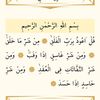 بِسْمِ اللَّهِ الرَّحْمَٰنِ الرَّحِيمِ
قُلْ أَعُوذُ بِرَبِّ الْفَلَقِ ۝ مِن شَرِّ مَا خَلَقَ
۝ وَمِن شَرِّ غَاسِقٍ إِذَا وَقَبَ ۝ وَمِن
شَرِّ النَّفَّاثَاتِ فِي الْعُقَدِ ۝ وَمِن شَرِّ
حَاسِدٍ إِذَا حَسَدَ ۝